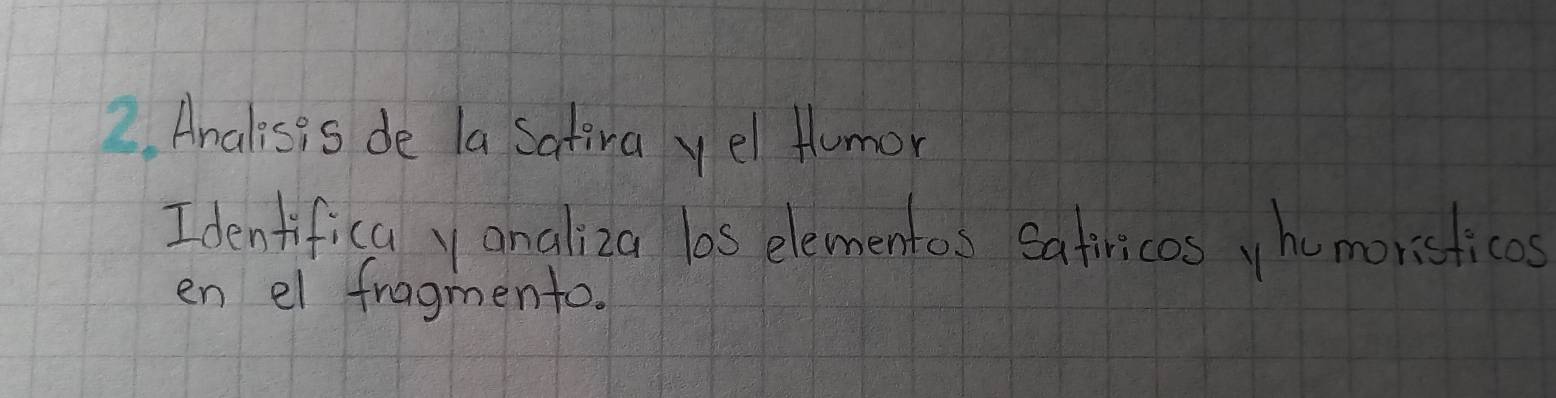 2. Analisis de la Satira y el Humor
Identifica y analiza los elementos Satiricos y humoristicos
en el fragmento.